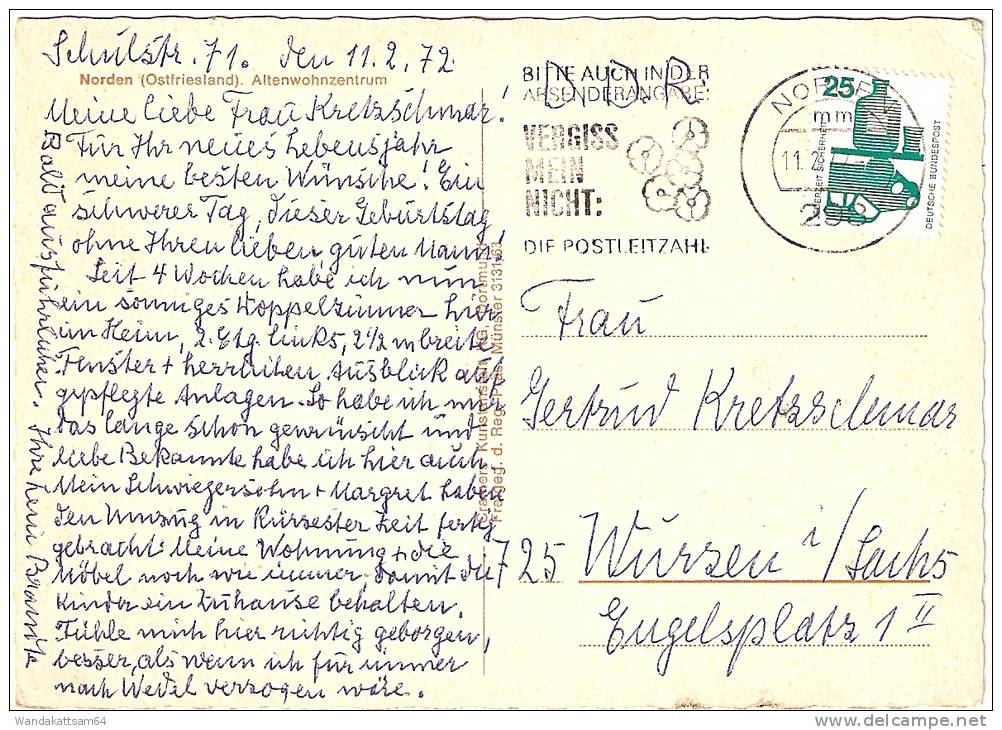 Schulstr. 71. den 11.2.72
Norden (Ostfriesland). Altenwohnzentrum
Meine liebe Frau Kretzschmar!
Für Ihr neues Lebensjahr
meine besten Wünsche! Ein
schwerer Tag, dieser Geburtstag
ohne Ihren lieben guten Mann!
Seit 4 Wochen habe ich nun
ein sonniges Doppelzimmer hier
im Heim, 2. Etg. links, 2½ m breite
Fenster + herrlichen Ausblick auf
gepflegte Anlagen. So habe ich mir
das lange schon gewünscht und
liebe Bekannte habe ich hier auch.
Mein Schwiegersohn + Margret haben
den Umzug in kürzester Zeit fertig
gebracht. Meine Wohnung + die
Möbel noch wie immer, damit die
Kinder ein Zuhause behalten.
Fühle mich hier richtig geborgen,
besser, als wenn ich für immer
nach Wedel verzogen wäre.
Bald ausführlicher. Ihre
Cramers Kunstanstalt KG, Dortmund
Freigeg. d. Reg. Präs. Münster
BITTE AUCH IN DER
ABSENDERANGABE:
VERGISS
MEIN
NICHT:
DIE POSTLEITZAHL
D.D.R.
NORDEN
mm
11.2.
25
JEDERZEIT SICHERHEIT
DEUTSCHE BUNDESPOST
Frau
Gertrud Kretzschmar
725 Wurzen i/Sachs
Engelsplatz 1 II
Wandakattsam64
delcampe.net